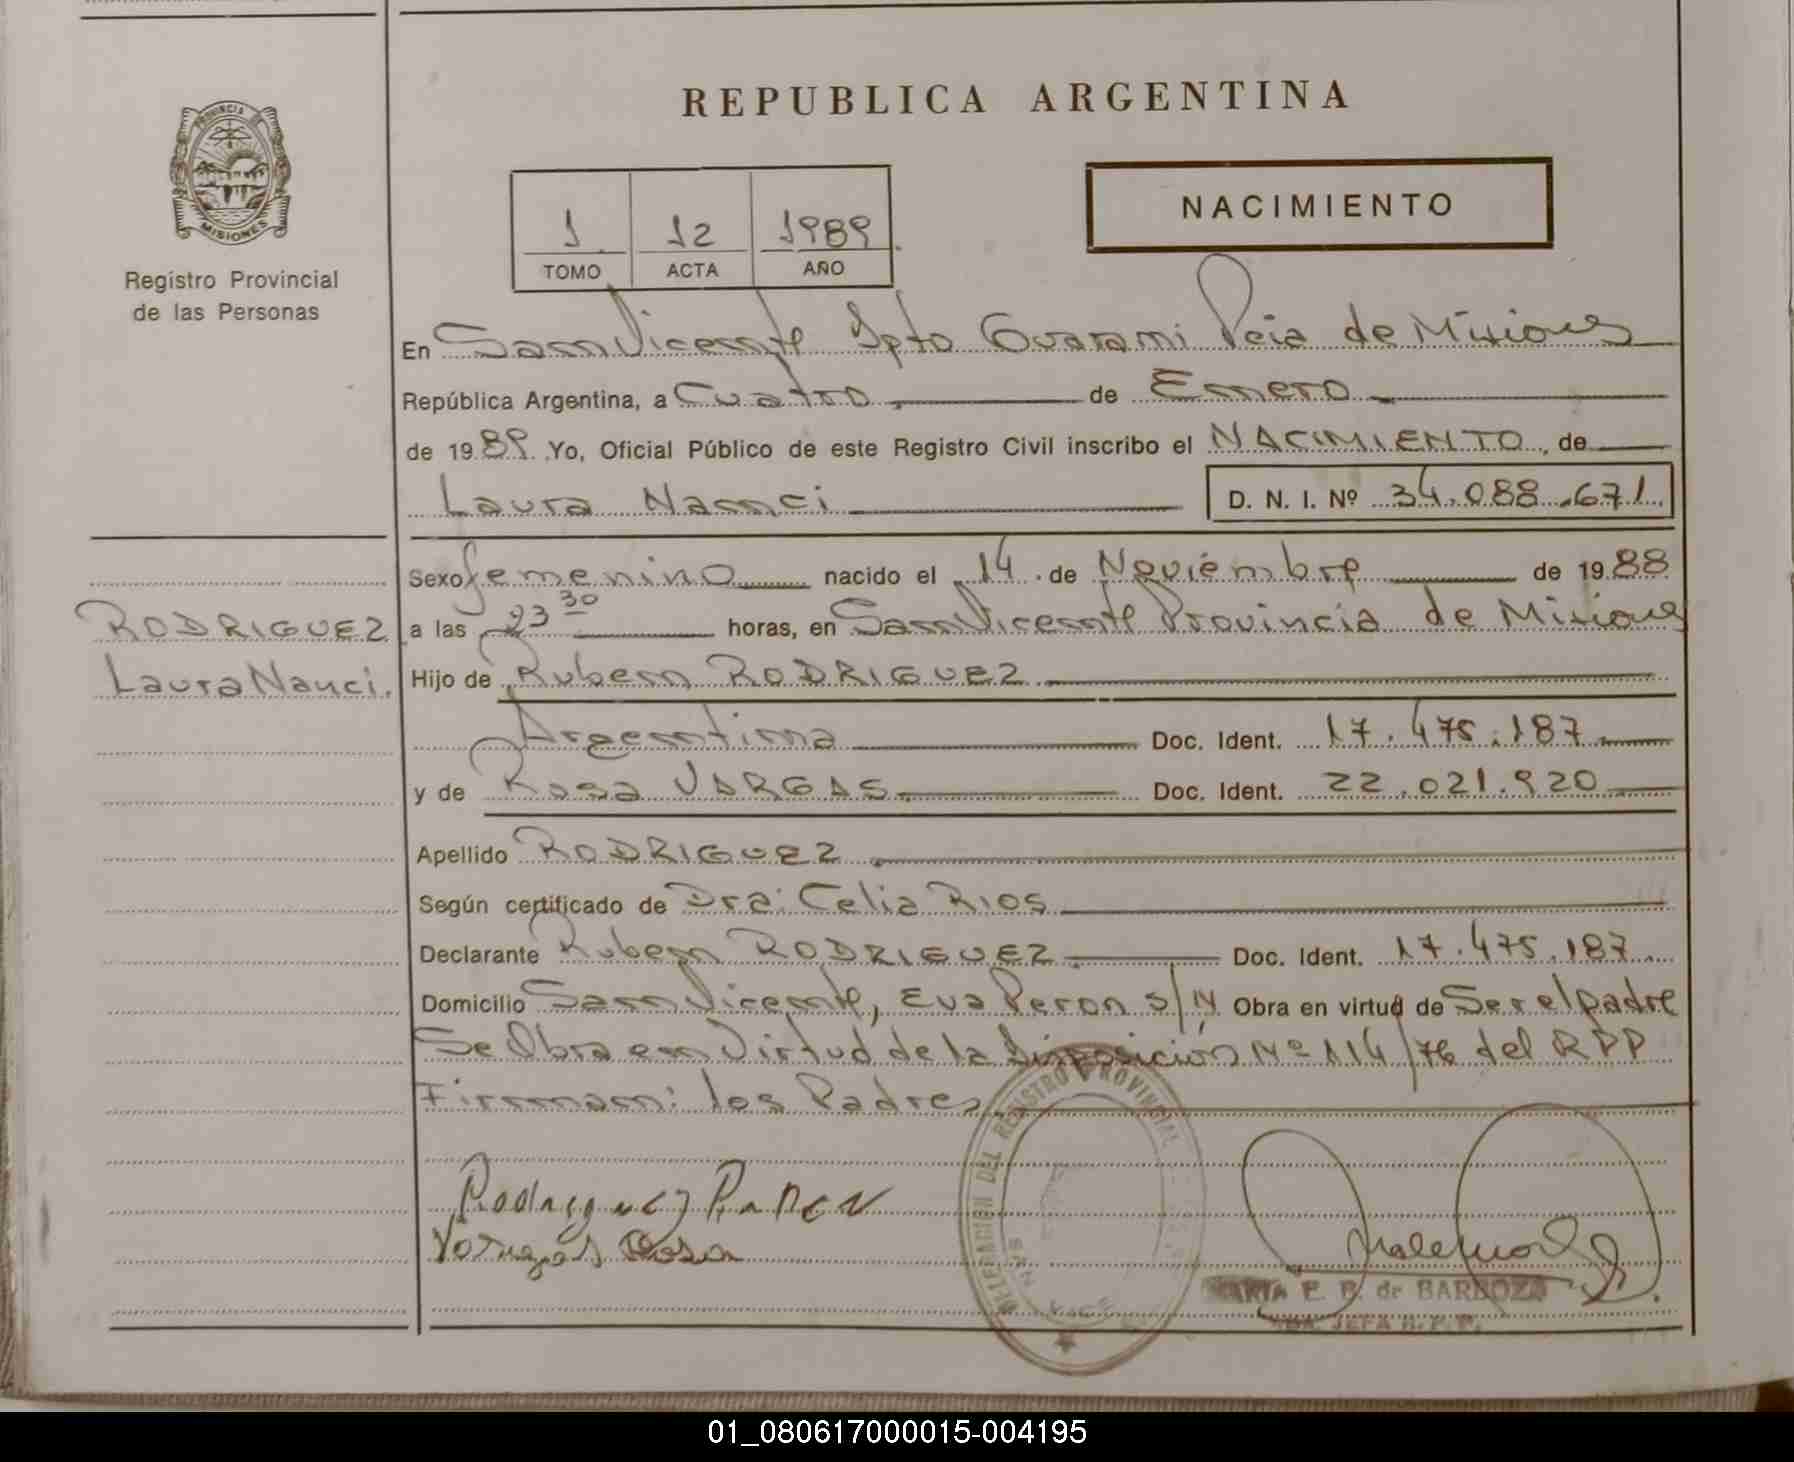 REPUBLICA ARGENTINA
PROVINCIA DE
MISIONES
Registro Provincial
de las Personas
1 12 1989
TOMO ACTA AÑO
NACIMIENTO
En San Vicente Dpto Guarani Pcia de Misiones
República Argentina, a Cuatro de Enero
de 1989 Yo, Oficial Público de este Registro Civil inscribo el NACIMIENTO, de
Laura Nanci D. N. I. Nº 34.088.671
Sexo femenino nacido el 14 de Noviembre de 1988
RODRIGUEZ
Laura Nanci.
a las 23 30 horas, en San Vicente Provincia de Misiones
Hijo de Ruben RODRIGUEZ
Argentina Doc. Ident. 17.475.187
y de Rosa VARGAS Doc. Ident. 22.021.920
Apellido RODRIGUEZ
Según certificado de Dra: Celia RIOS
Declarante Ruben RODRIGUEZ Doc. Ident. 17.475.187
Domicilio San Vicente, Eva Peron S/N Obra en virtud de Ser el padre
Se Obra en Virtud de la Disposición Nº 114/76 del RPP
Firman: los Padres
DELEGACION DEL REGISTRO PROVINCIAL
Rodriguez Ruben
Vargas Rosa
E. B. de BARBOZA
JEFA R. P. P.
01_080617000015-004195